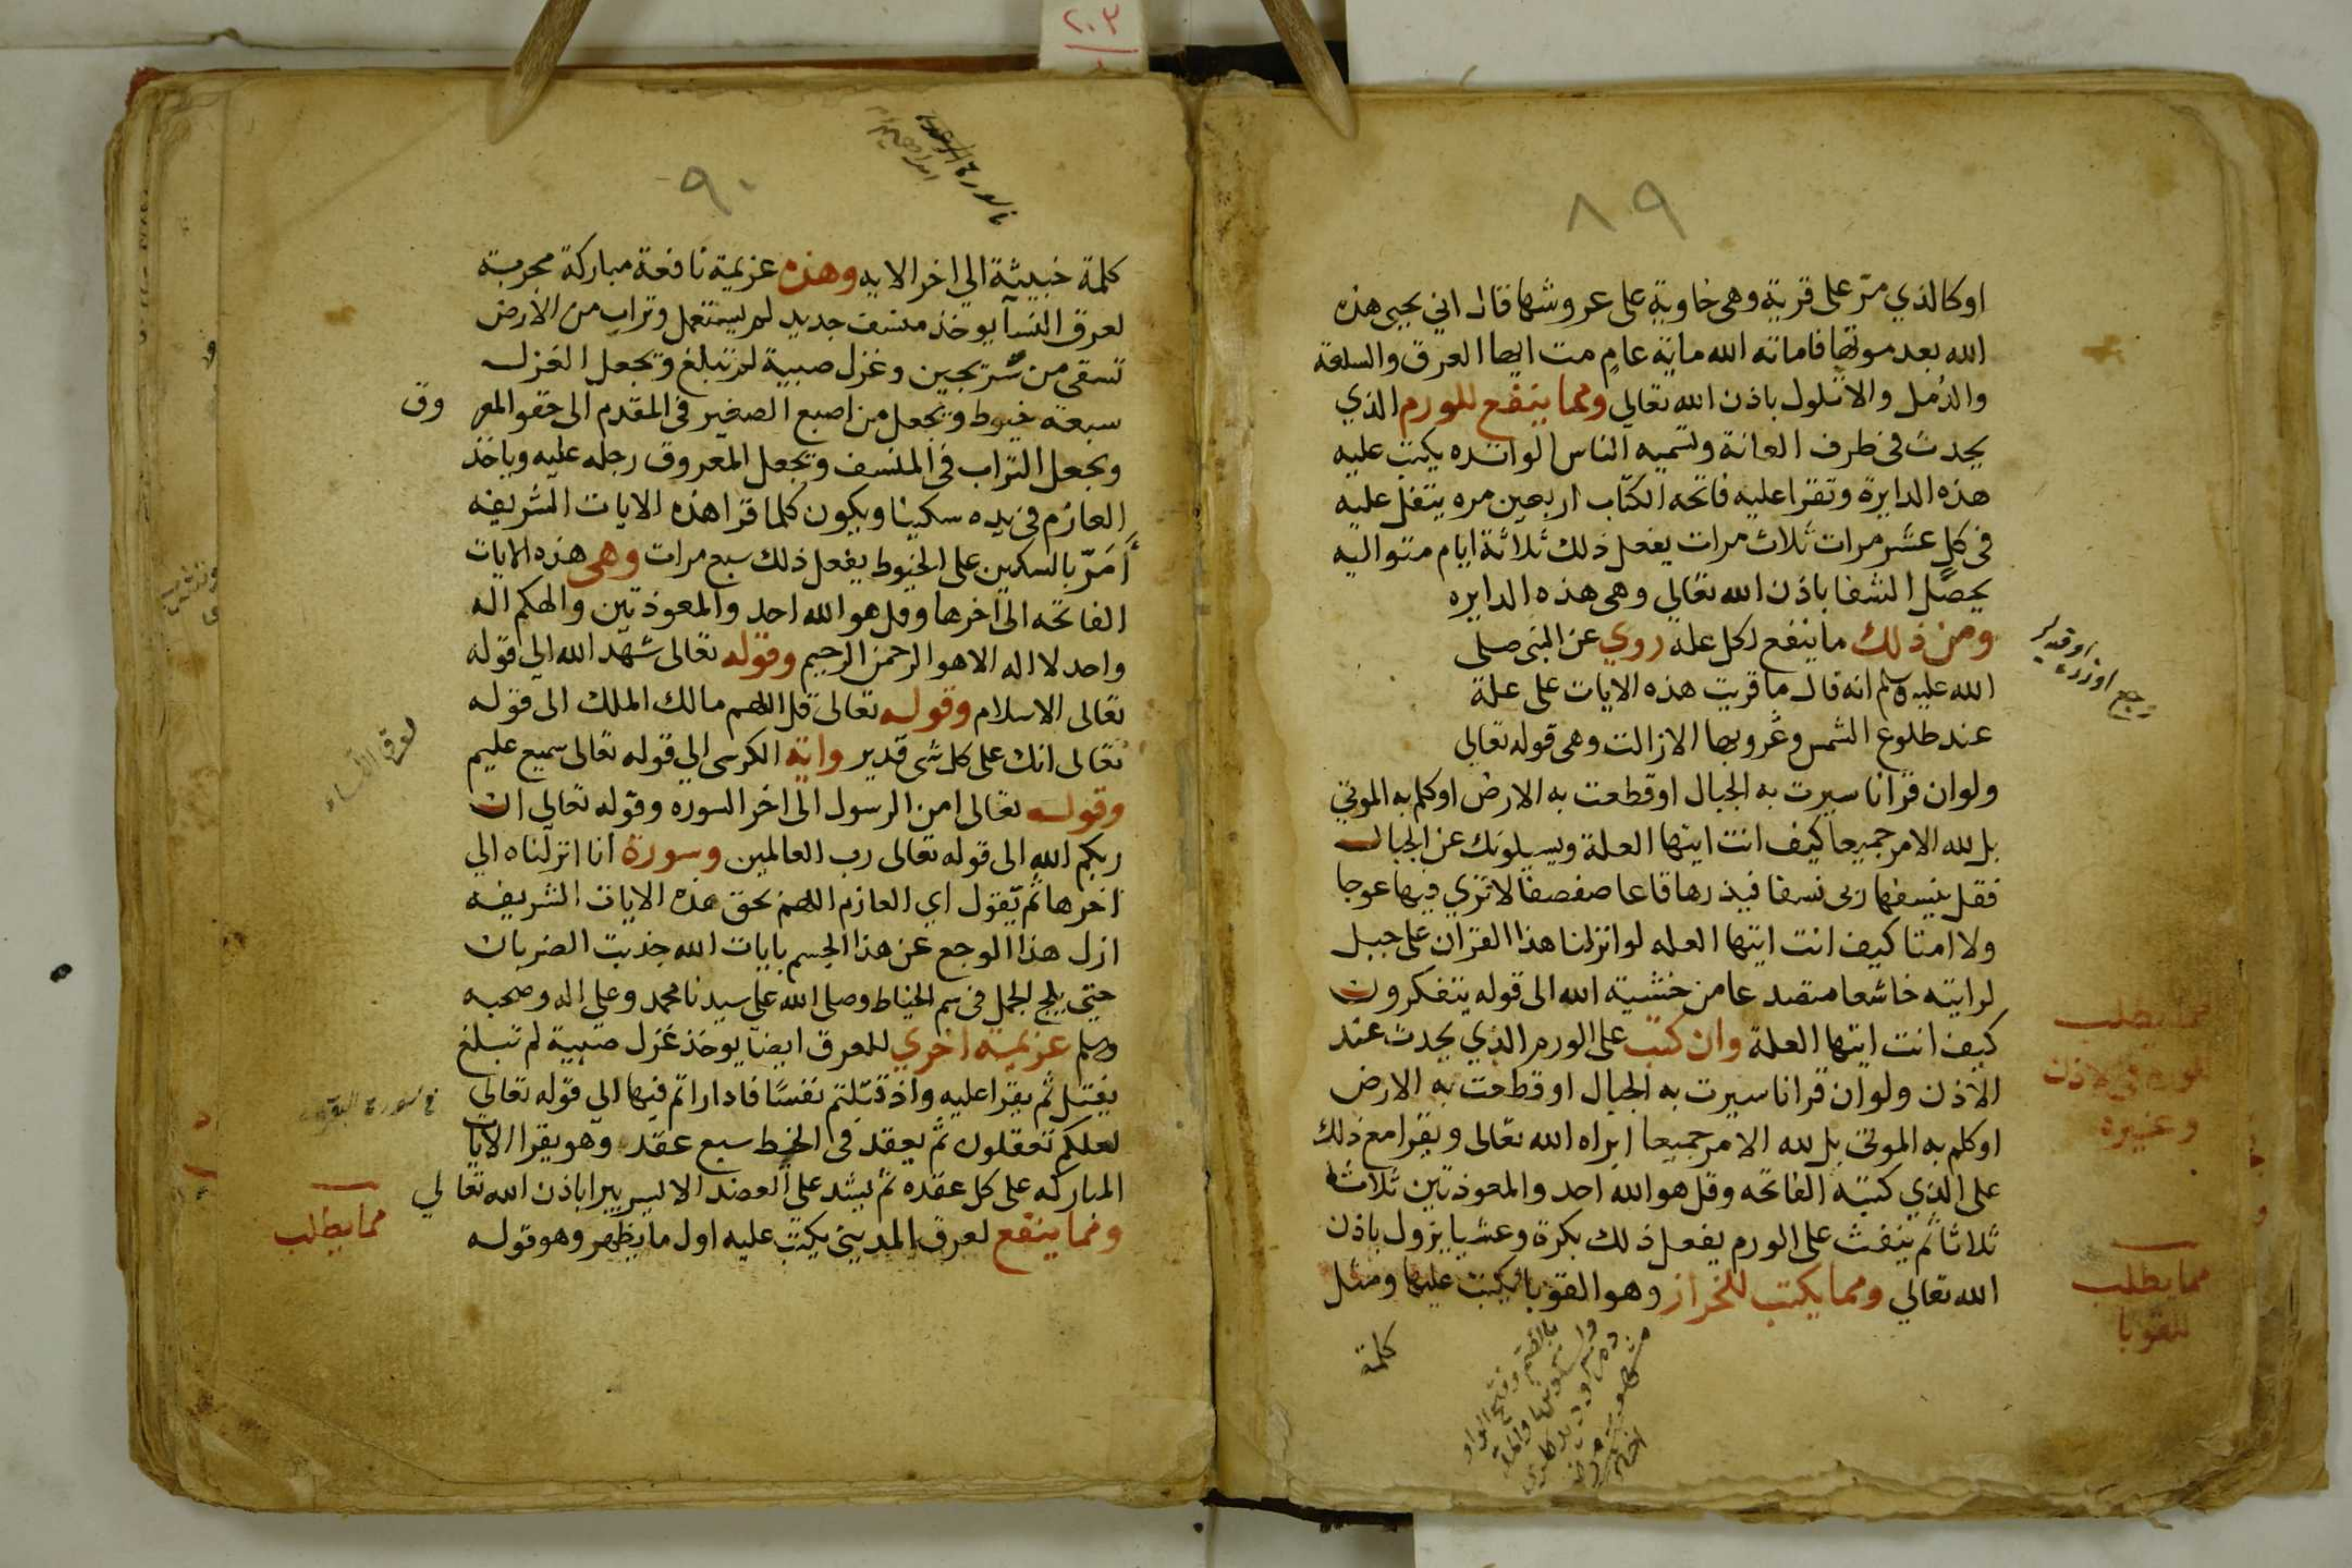 ٢٠٣
٨٩
اوكالذي مرّ على قرية وهى خاوية على عروشها قال انى يحيى هذه
الله بعد موتها فاماته الله ماية عامٍ مت ايها العرق والسلعة
والدُمل والاثلول باذن الله تعالى ومما ينفع للورم الذي
يحدث فى طرف العانة وتسميه الناس الوالده يكتب عليه
هذه الدايرة وتقرا عليه فاتحه الكتاب اربعين مره يتفل عليه
فى كل عشر مرات ثلاث مرات يفعل ذلك ثلاثة ايام متواليه
يحصل الشفا باذن الله تعالى وهى هذه الدايره
ومن ذلك ما ينفع لكل علة روي عن النبى صلى
الله عليه وسلم انه قال ما قريت هذه الايات على علة
عند طلوع الشمس وغروبها الا زالت وهى قوله تعالى
ولو ان قرانا سيرت به الجبال او قطعت به الارض او كلم به الموتى
بل لله الامر جميعا كيف انت ايتها العلة ويسيلونك عن الجبال
فقل ينسفها ربى نسفا فيذرها قاعا صفصفا لا ترى فيها عوجا
ولا امتا كيف انت ايتها العله لو انزلنا هذا القران على جبل
لرايته خاشعا متصدعا من خشية الله الى قوله يتفكرون
كيف انت ايتها العلة وان كتب على الورم الذي يحدث عند
الاذن ولو ان قرانا سيرت به الجبال او قطعت به الارض
او كلم به الموتى بل لله الامر جميعا ابراه الله تعالى ويقرا مع ذلك
على الذي كتبته الفاتحه وقل هو الله احد والمعوذتين ثلاثا
ثلاثا ثم ينفث على الورم يفعل ذلك بكرة وعشيا يزول باذن
الله تعالى ومما يكتب للخراز وهو القوبا يكتب عليها ومثل
كلمة
مما يطلب
للورم فى الاذن
وغيره
مما يطلب
للقوبا
٩٠
كلمة خبيثة الى اخر الايه وهذه عزيمة نافعة مباركة مجربة
لعرق النسآ يوخذ منسف جديد لم يستعمل وتراب من الارض
تسقى من سريجين وغزل صبية لم تبلغ وتجعل الغزل
سبعة خيوط وتجعل من اصبع الصغير فى المقدم الى حقو المعروق
وتجعل التراب فى المنسف وتجعل المعروق رجله عليه وياخذ
العازم فى يده سكينا ويكون كلما قرا هذه الايات الشريفه
أَمَرّ بالسكين على الخيوط يفعل ذلك سبع مرات وهى هذه الايات
الفاتحه الى اخرها وقل هو الله احد والمعوذتين والهكم اله
واحد لا اله الا هو الرحمن الرحيم وقوله تعالى شهد الله الى قوله
تعالى الاسلام وقوله تعالى قل اللهم مالك الملك الى قوله
تعالى انك على كل شى قدير واية الكرسى الى قوله تعالى سميع عليم
وقوله تعالى امن الرسول الى اخر السوره وقوله تعالى ان
ربكم الله الى قوله تعالى رب العالمين وسورة انا انزلناه الى
اخرها ثم تقول اي العازم اللهم بحق هذه الايات الشريفه
ازل هذا الوجع عن هذا الجسم بايات الله جذبت الضربان
حتى يلج الجمل فى سم الخياط وصلى الله على سيدنا محمد وعلى اله وصحبه
وسلم عزيمة اخري للعرق ايضا يوخذ غزل صبية لم تبلغ
يفتل ثم يقرا عليه واذ قتلتم نفسًا فادارأتم فيها الى قوله تعالى
لعلكم تعقلون ثم يعقد فى الخيط سبع عقد وهو يقرا الايات
المباركه على كل عقده ثم يشد على العضد الايسر يبرا باذن الله تعالي
ومما ينفع لعرق المدينى يكتب عليه اول ما يظهر وهو قوله
لعرق النساء
فى سورة البقره
مما يطلب